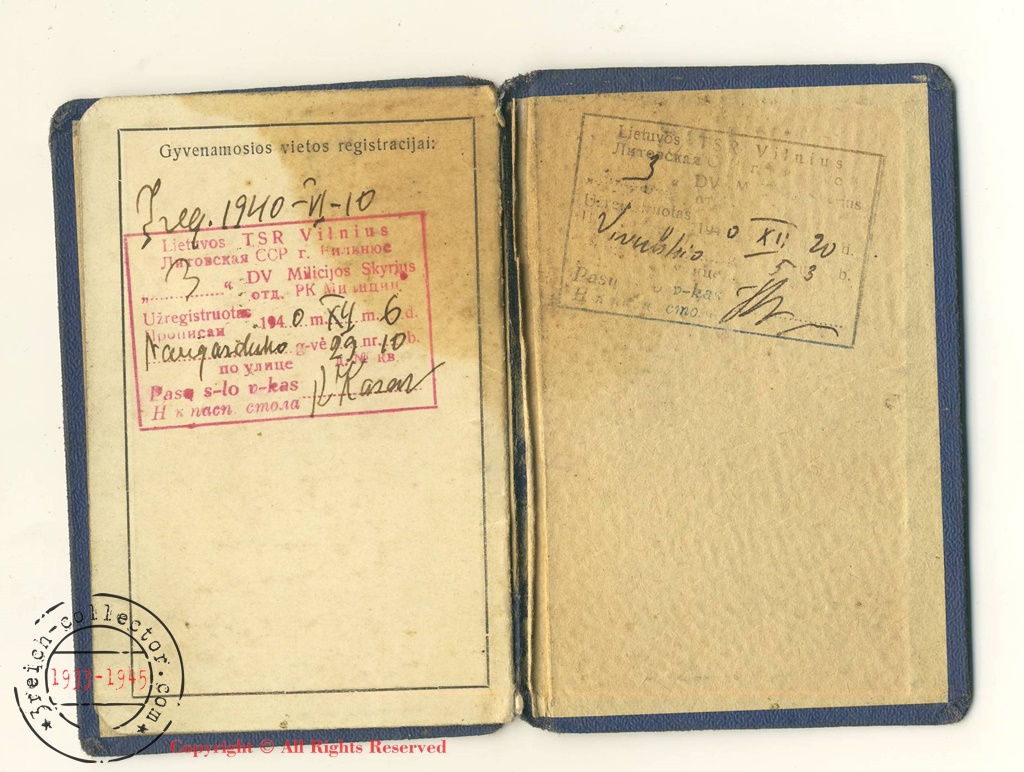 Gyvenamosios vietos registracijai:
Įreg. 1940-VI-10
Lietuvos TSR Vilnius
Литовская ССР г. Вильнюс
„ 3 “ DV Milicijos Skyrius
отд. РК Милиции
Užregistruotas 1940 m. XII m. 6 d.
Прописан
Naugarduko g-vė 29 nr. 10 b.
по улице д.№ кв.
Pasų s-lo v-kas
Н-к пасп. стола
Lietuvos TSR Vilnius
Литовская С г. с
3 “ DV M
отд.
Užregistruotas 1940 XII 20 d.
Vivulskio 5 3 b.
улице
Pasų v-kas
Н-к пасп. стола
3reich-collector.com
1933-1945
Copyright © All Rights Reserved